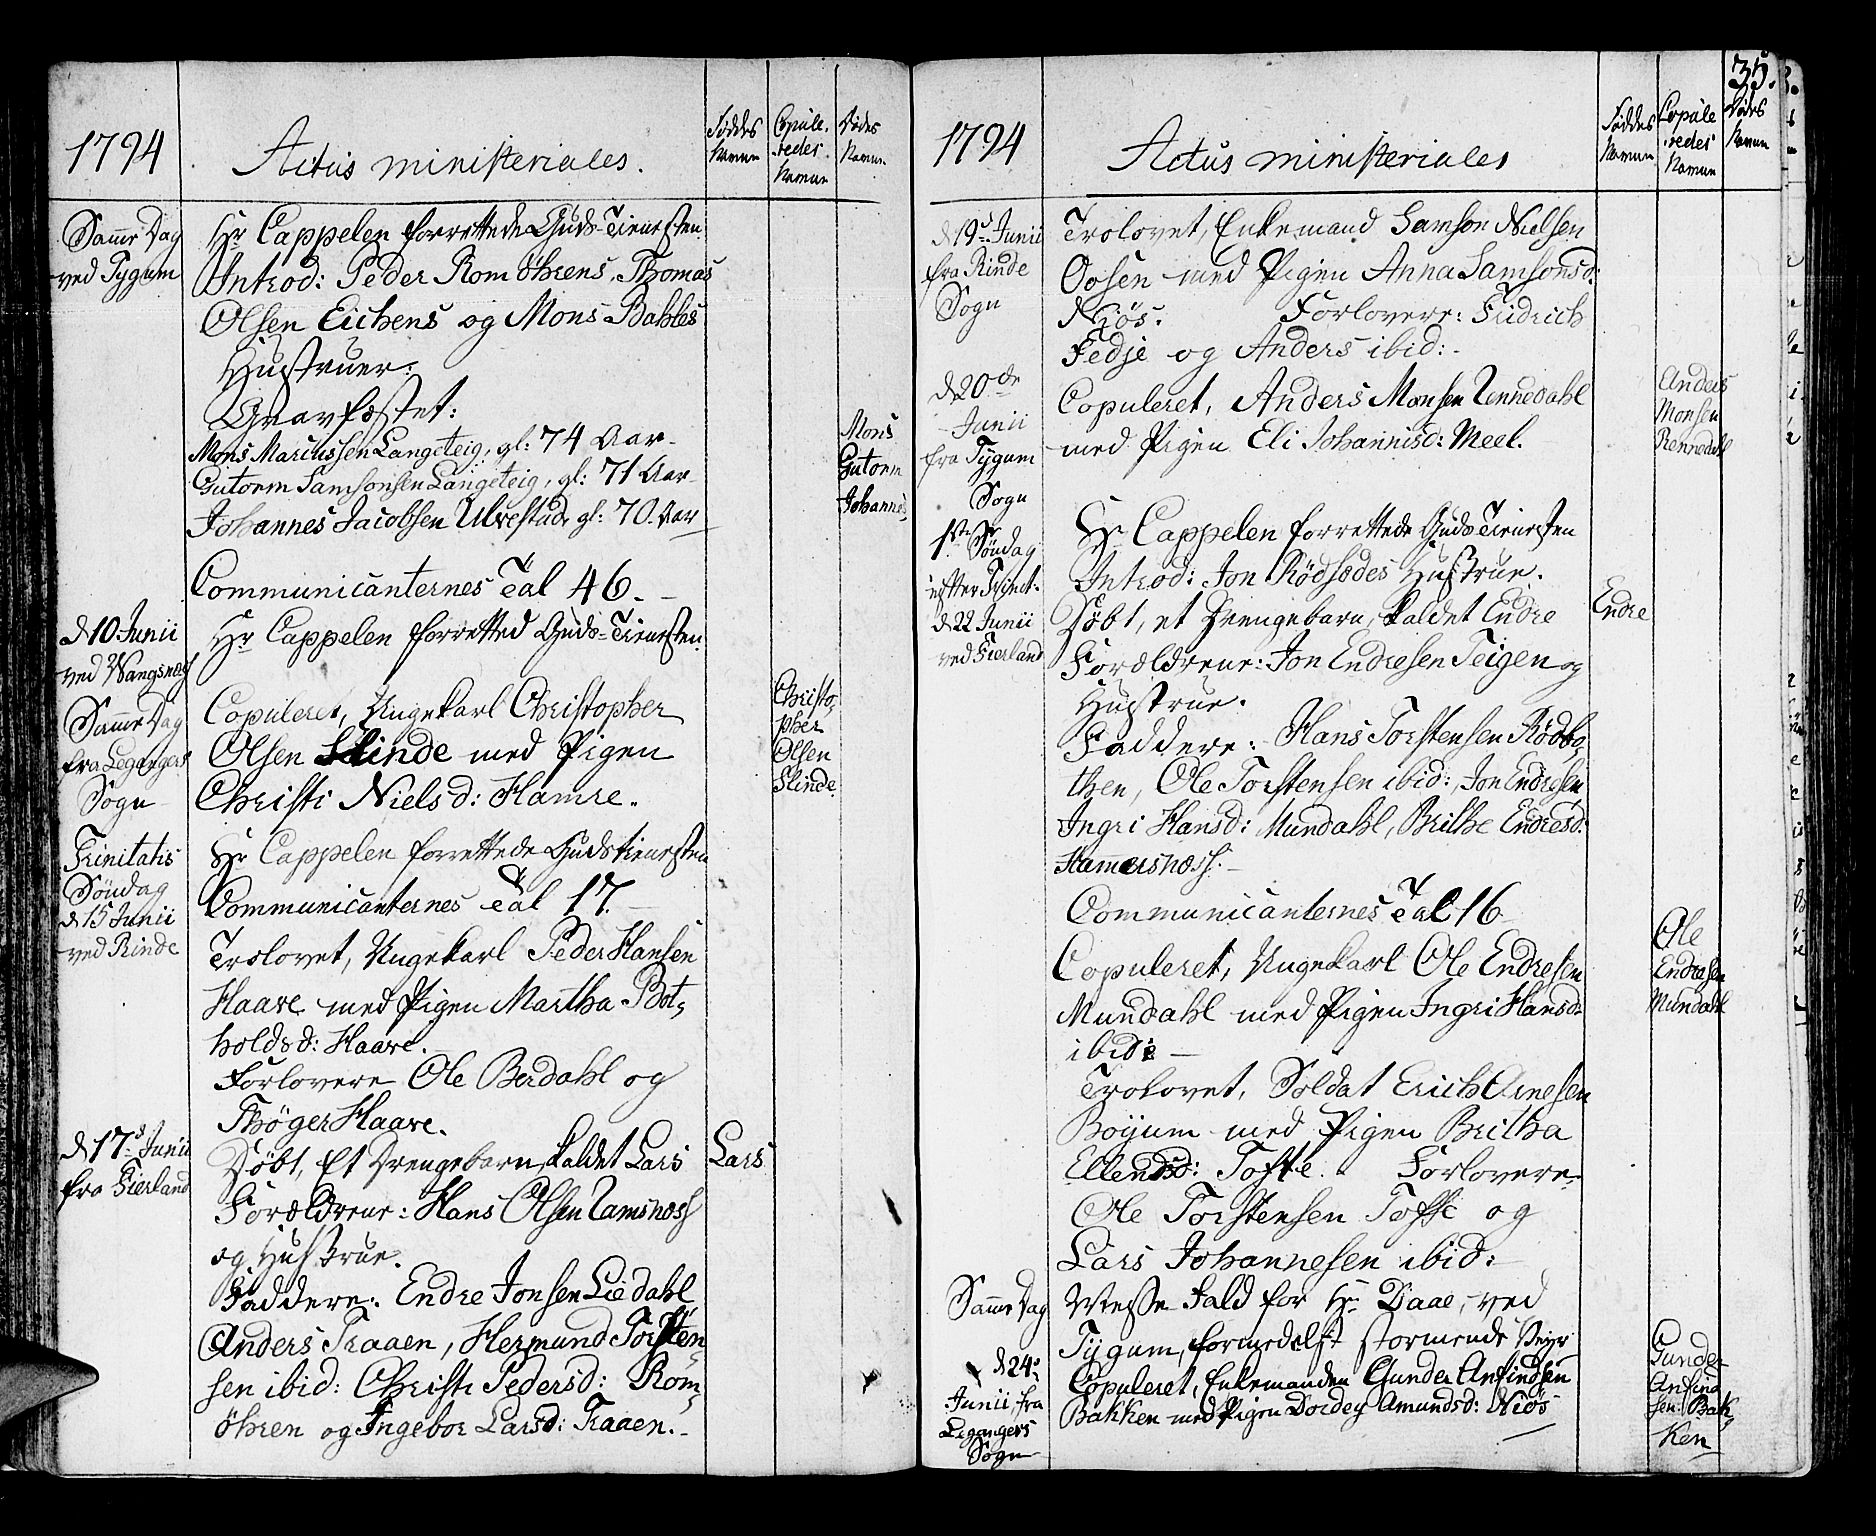 1794
Actus ministeriales.
Føddes Navnu
Copule-redes Navnu
Dødes Navnu
Samme Dag
ved Tygum
Hr Cappelen forrettede Guds-Tienesten
Introd: Peder Romöhrens, Thomas
Olsen Eichens og Mons Bahles
Hustruer.
Gravfæstet:
Mons Marcussen Langeteig, gl: 74 Aar
Mons
Gutorm Samsonsen Langeteig, gl: 71 Aar
Gutorm
Johannes Jacobsen Ulvestad, gl: 70 Aar
Johannes
Communicanternes Tal 46.
d 10 Junii
ved Wangsnæs
Hr Cappelen forretted Guds-Tienesten
Samme Dag
fra Legangers
Sogn
Copuleret, Ungekarl Christopher
Olsen Slinde med Pigen
Christi Nielsd: Hamre.
Christo-
pher
Olsen
Slinde
Trinitatis
Søndag
d 15 Junii
ved Rinde
Hr Cappelen forrettede Gudstienesten
Communicanternes Tal 17.
Trolovet, Ungekarl Peder Hansen
Haave med Pigen Martha Bot-
holdsd: Haave.
Forlovere Ole Berdahl og
Thöger Haave.
d 17de Junii
fra Fierland
Døbt, Et Drengebarn, kaldet Lars
Lars
Forældrene: Hans Olsen Ramsnæss
og Hustrue.
Faddere: Endre Jonsen Liedahl
Anders Traaen, Hermund Torsten-
sen ibid: Christi Pedersd: Rom-
öhren og Ingebor Larsd: Traaen.
35.
1794
Actus ministeriales
Føddes Navnu
Copule-redes Navnu
Dødes Navnu
d 19de Junii
fra Rinde
Sogn
Trolovet, Enkemand Samson Nielsen
Oosen med Pigen Anna Samsonsd:
Niös. Forlovere: Fridrich
Fedje og Anders ibid:
d 20de
Junii
fra Tygum
Sogn
Copuleret, Anders Monsen Rennedahl
med Pigen Eli Johannisd: Meel.
Anders
Monsen
Rennedahl
1ste Søndag
efter Trinit.
d 22 Junii
ved Fierland
Hr Cappelen forrettede Guds Tienesten
Introd: Jon Rödsædes Hustrue.
Døbt, et Drengebarn, kaldet Endre
Endre
Forældrene: Jon Endresen Teigen og
Hustrue.
Faddere: Hans Torstensen Rødbo-
then, Ole Torstensen ibid:, Jon Endresen
Ingri Hansd: Mundahl, Brithe Endresd:
Hamersnæss.
Communicanternes Tal 16
Copuleret, Ungekarl Ole Endresen
Mundahl med Pigen Ingri Hansd:
ibid:
Ole
Endresen
Mundahl
Trolovet, Soldat Erich Arnesen
Böyum med Pigen Britha
Ellendsd: Tofte. Forlovere
Ole Torstensen Tofte og
Lars Johannesen ibid:
Samme Dag
Messe-Fald for Hr Daae, ved
Tygum, formedelst stormende Veyr
d 24de
Junii, fra
Legangers
Sogn
Copuleret, Enkemanden Gunder Anfindsen
Bakken med Pigen Dordey Amundsd: Niös
Gunder
Anfind-
sen Bak-
ken